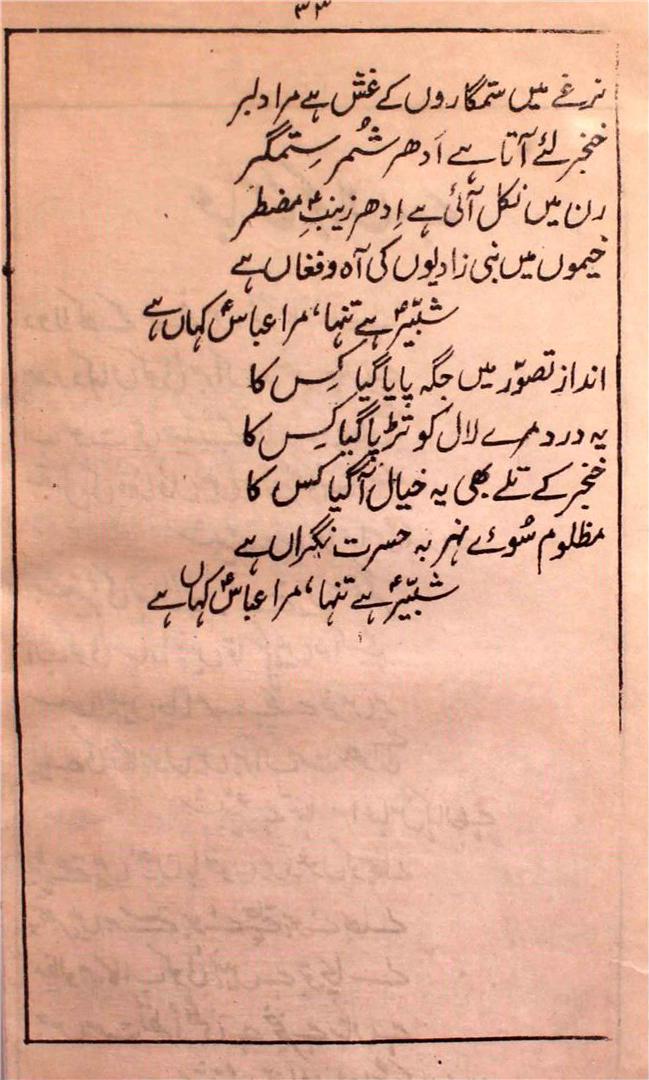 ۳۳
نرغے میں ستمگاروں کے غش ہے مرا دلبر
خنجر لئے آتا ہے اَدھر شُمر ستمگر
رن میں نکل آئی ہے اِدھر زینبِؑ مضطر
خیموں میں نبی زادیوں کی آہ و فغاں ہے
شبّیرؑ ہے تنہا، مرا عباسؑ کہاں ہے
اندازِ تصوّر میں جگہ پا یا گیا کِس کا
یہ درد مرے لال کو تڑپا گیا کِس کا
خنجر کے تلے بھی یہ خیال آ گیا کس کا
مظلوم سُوئے نہر بہ حسرت نگراں ہے
شبّیرؑ ہے تنہا، مرا عباسؑ کہاں ہے